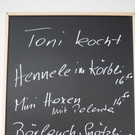 Toni kocht
Hennele im Körbli
14.50
Mini Haxen
mit Polenta
16.50
Bärlauch Spätzli